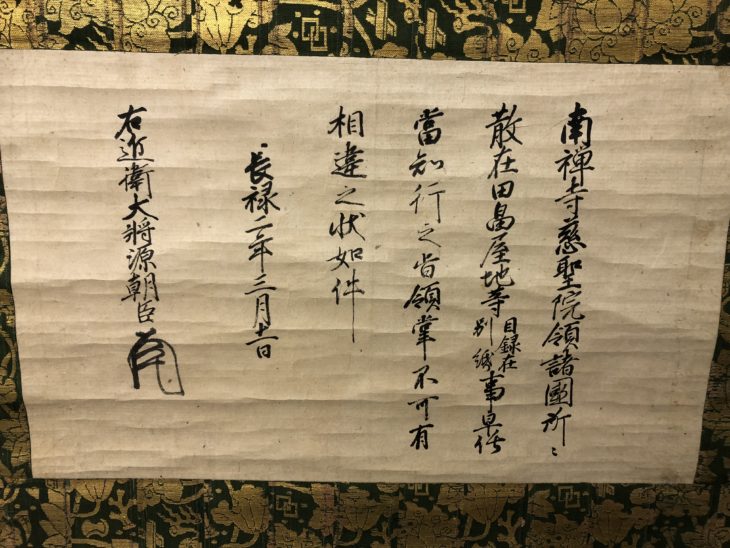 南禅寺慈聖院領諸國所々
散在田畠屋地等目録在別紙事早任
當知行之旨領掌不可有
相違之状如件
長禄二年三月十一日
右近衛大將源朝臣